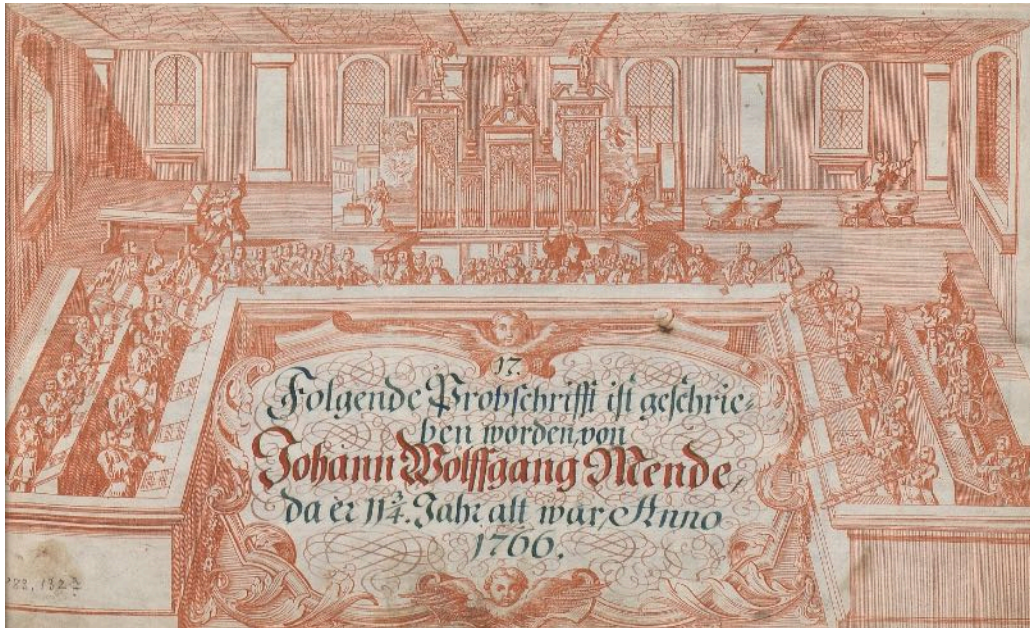 17.
Folgende Probschrifft ist geschrie=
ben worden von
Johann Wolffgang Mende,
da er 11 3/4. Jahr alt war, Anno
1766.